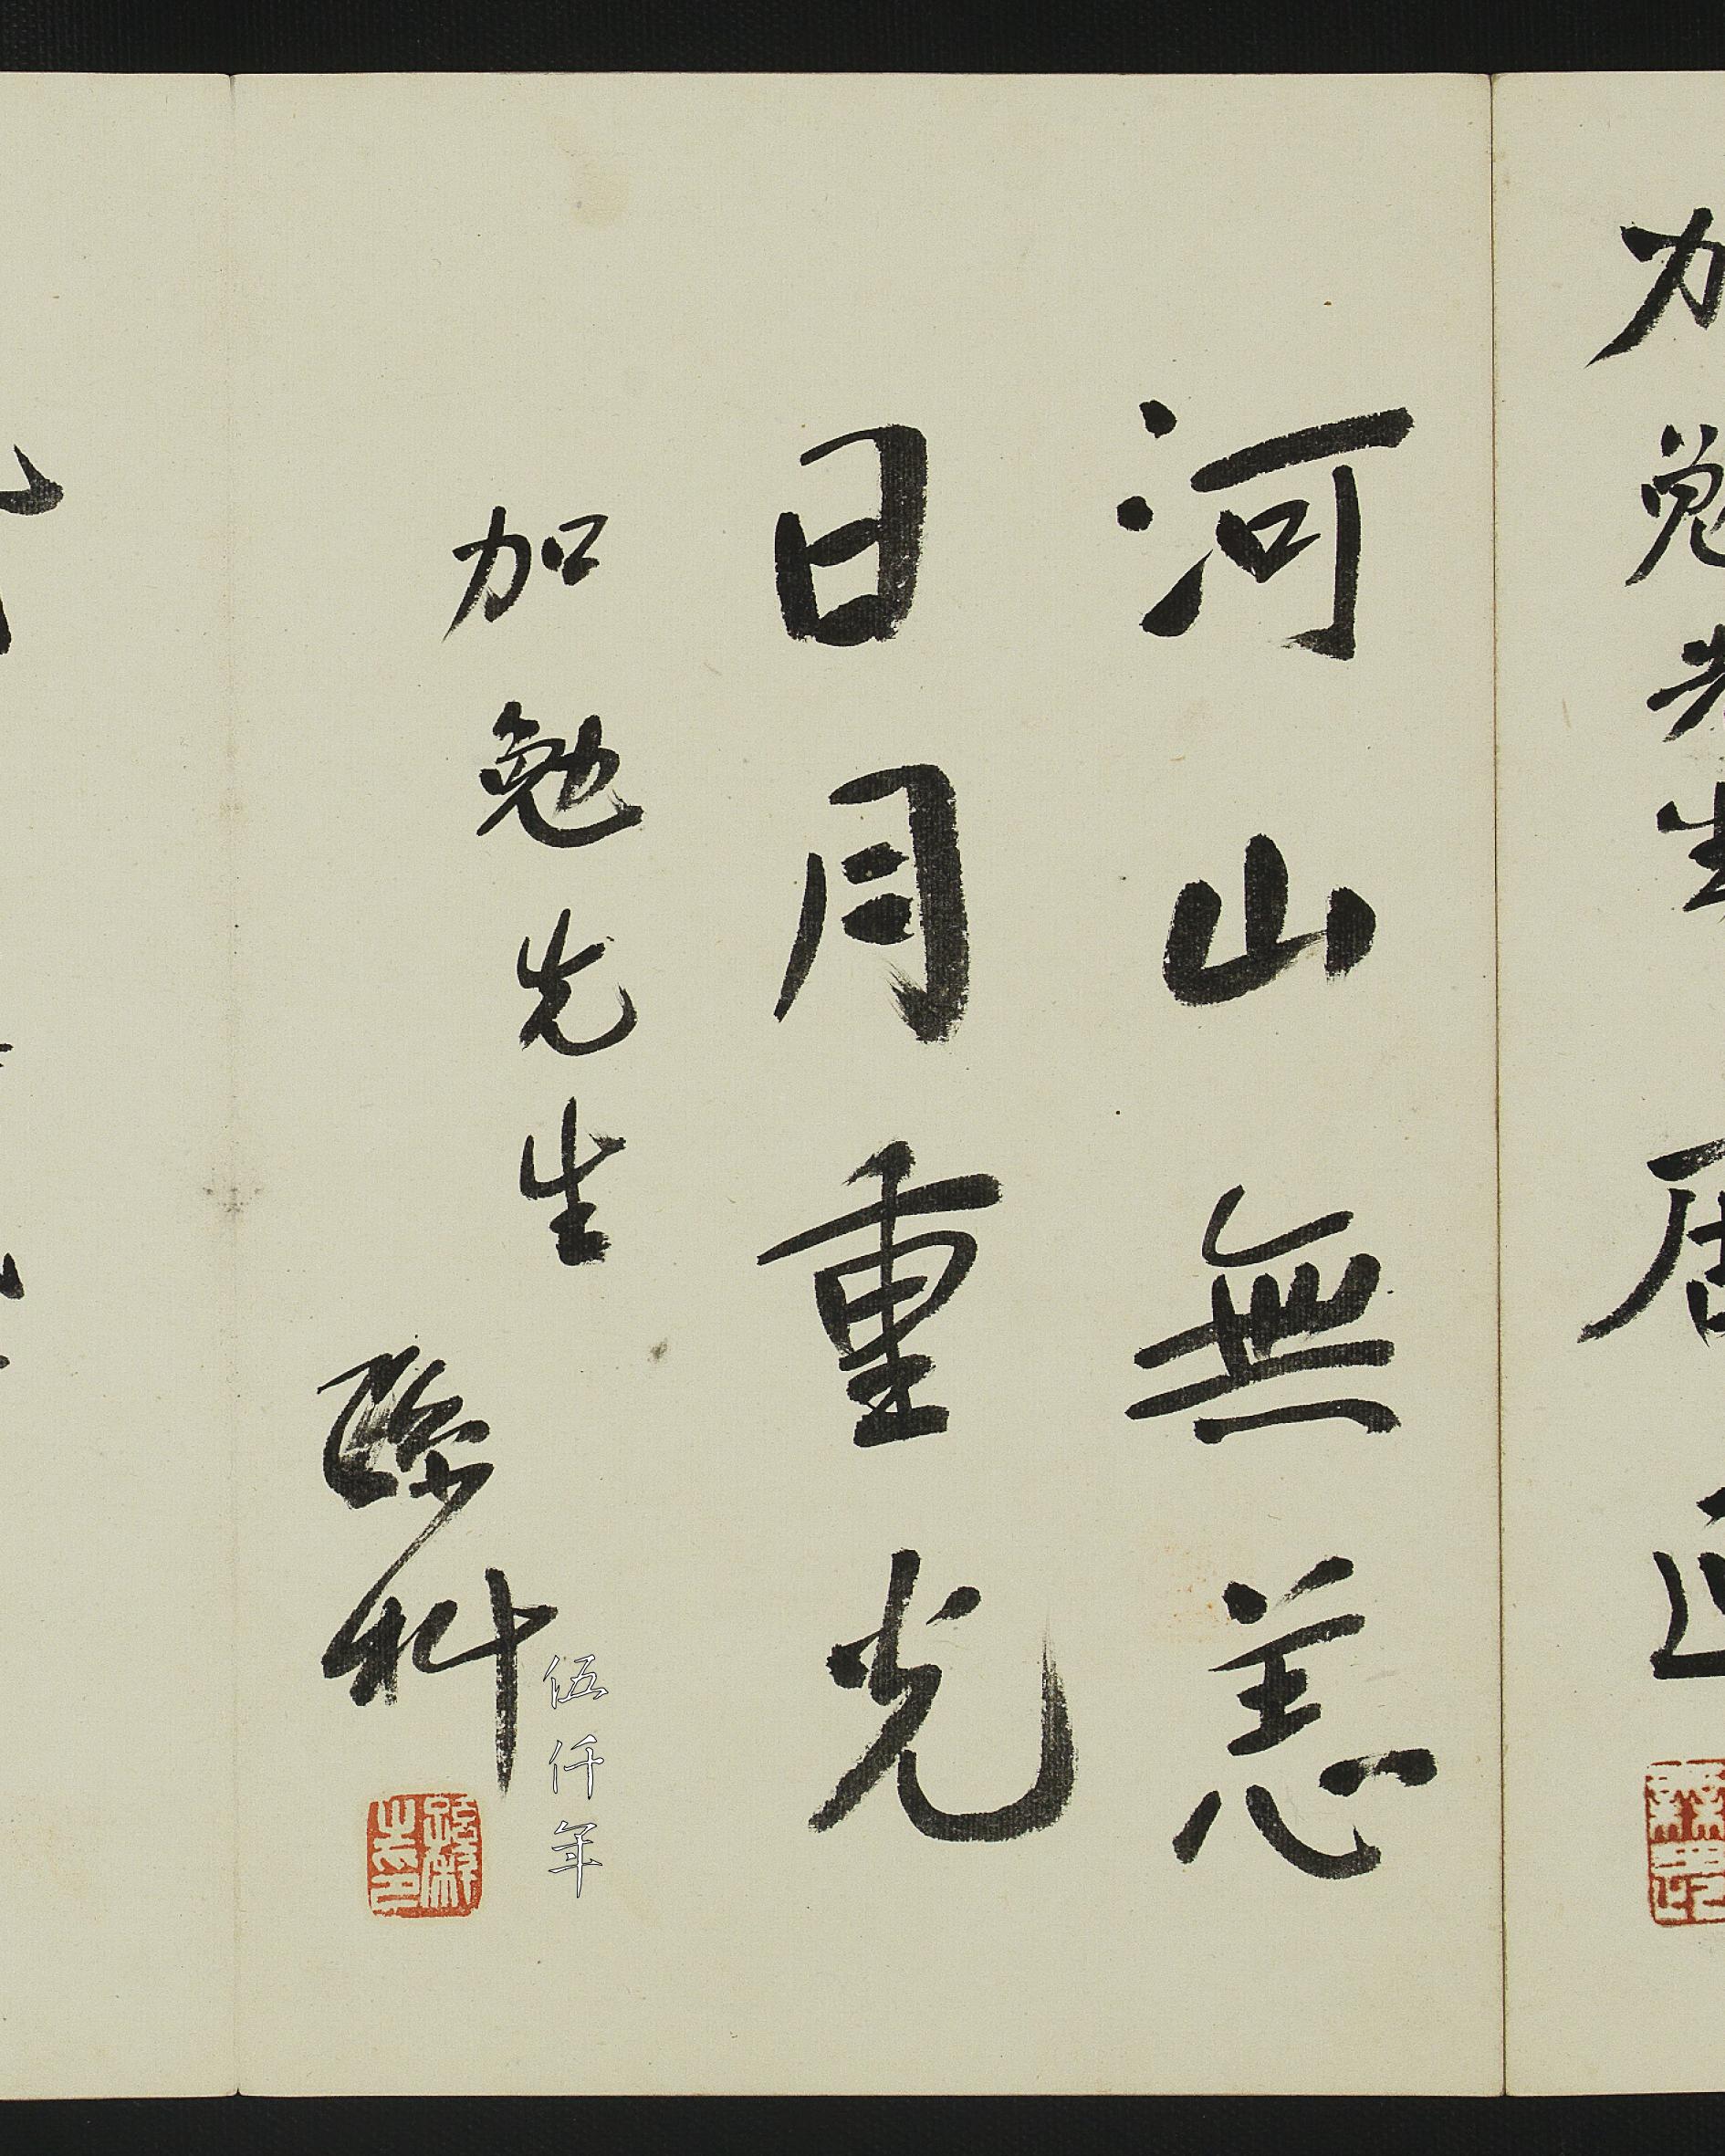 加勉先生 居正
河山無恙
日月重光
加勉先生
孫科
伍仟年